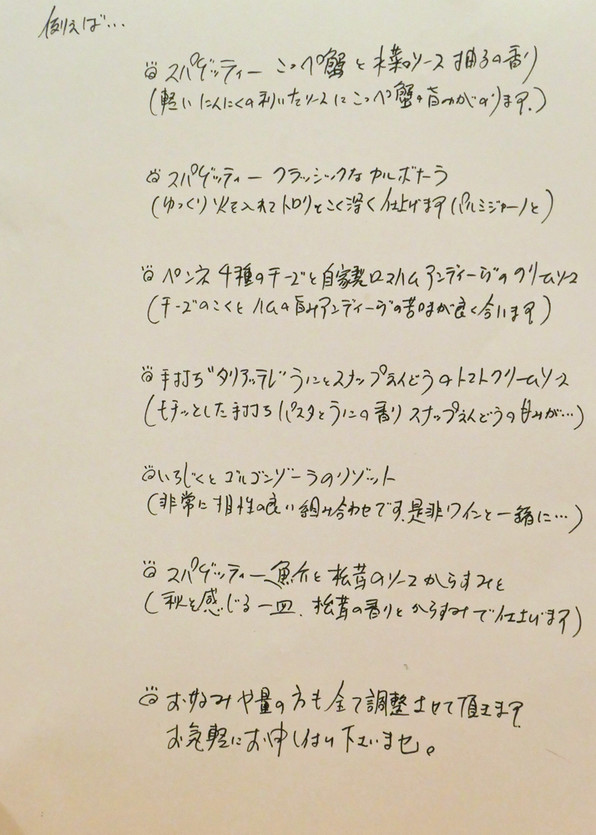 例えば…
スパゲッティー こっペ蟹と水菜のソース 柚子の香り
(軽いにんにくの利いたソースにこっペ蟹の旨みがのります。)
スパゲッティー クラッシックなカルボナーラ
(ゆっくり火を入れてトロりとこく深く仕上げます(パルミジャーノと)
ペンネ 4種のチーズと自家製ロースハム アンディーヴのクリームソース
(チーズのこくとハムの旨みアンディーヴの苦味が良く合います)
手打ち"タリアッテレ" うにとスナップえんどうのトマトクリームソース
(モチッとした手打ちパスタとうにの香り スナップえんどうの甘みが…)
いちじくとゴルゴンゾーラのリゾット
(非常に相性の良い組み合わせです、是非ワインと一緒に…)
スパゲッティー 魚介と松茸のソース からすみと
(秋を感じる一皿、松茸の香りとからすみで仕上げます)
お好みや量の方も全て調整させて頂きます
お気軽にお申し付け下さいませ。